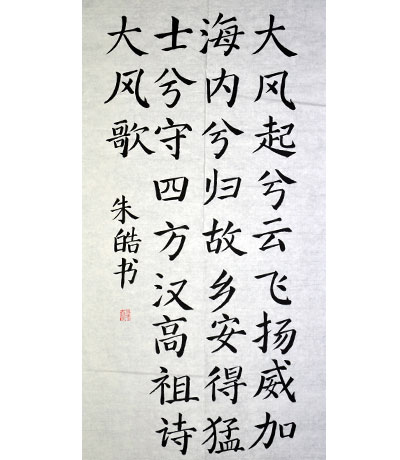 大风起兮云飞扬威加
海内兮归故乡安得猛
士兮守四方汉高祖诗
大风歌
朱皓书